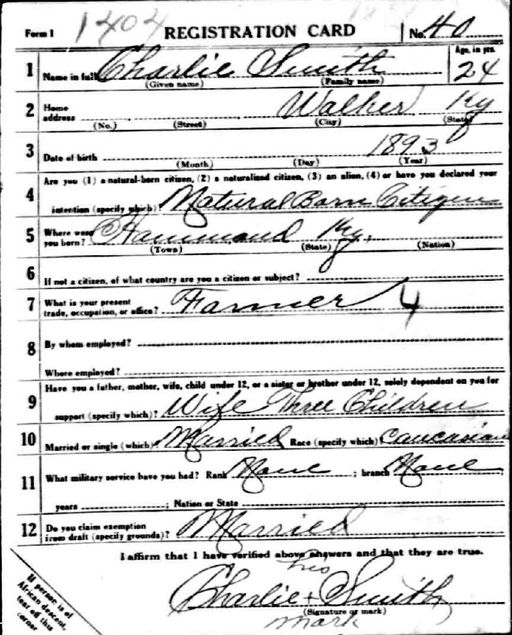 Form 1 1404 REGISTRATION CARD No. 40
1 Name in full Charlie Smith Age, in yrs. 24
(Given name) (Family name)
2 Home address Walker Ky
(No.) (Street) (City) (State)
3 Date of birth 1893
(Month) (Day) (Year)
4 Are you (1) a natural-born citizen, (2) a naturalized citizen, (3) an alien, (4) or have you declared your
intention (specify which)? Natural Born Citizen
5 Where were you born? Hammond Ky.
(Town) (State) (Nation)
6 If not a citizen, of what country are you a citizen or subject?
7 What is your present trade, occupation, or office? Farmer 4
8 By whom employed?
Where employed?
9 Have you a father, mother, wife, child under 12, or a sister or brother under 12, solely dependent on you for
support (specify which)? Wife Three Children
10 Married or single (which)? Married Race (specify which)? Caucasian
11 What military service have you had? Rank None ; branch None
years ; Nation or State
12 Do you claim exemption from draft (specify grounds)? Married
I affirm that I have verified above answers and that they are true.
his
Charlie + Smith
(Signature or mark)
mark
If person is of
African descent,
tear off this
corner